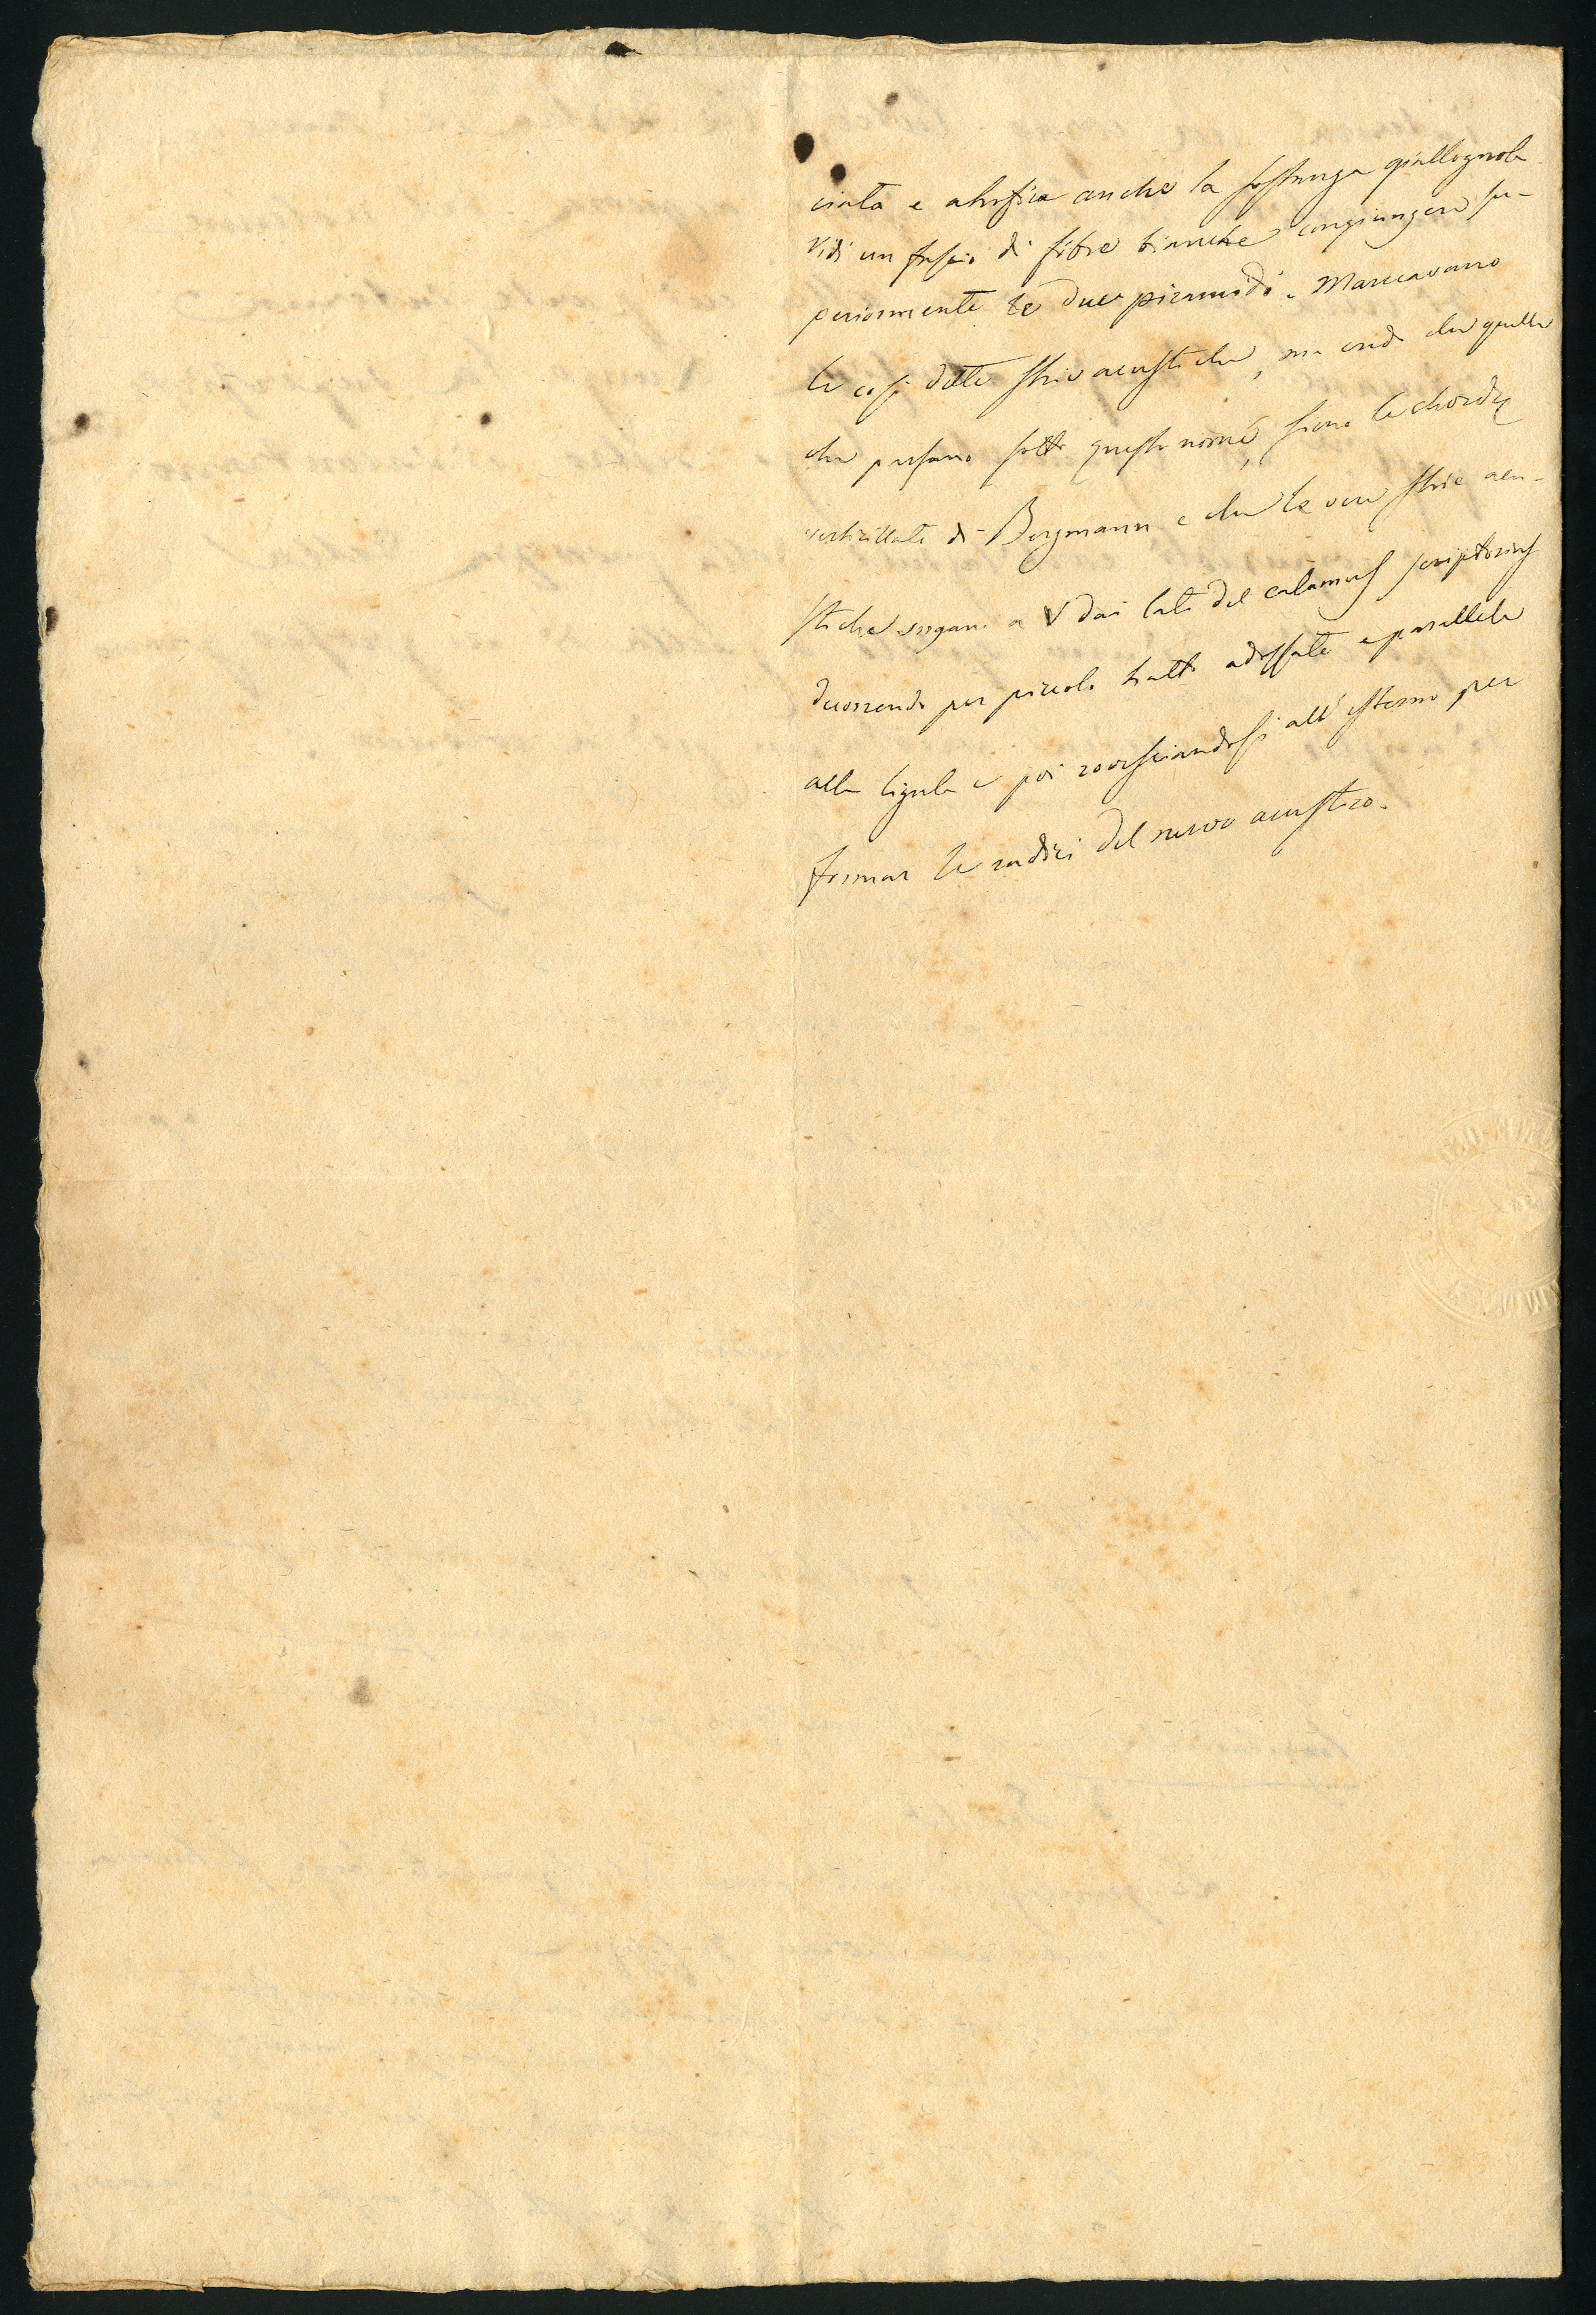 ciata e atrofica anche la sostanza giallognola.
Vidi un fascio di fibre bianche congiungere su-
periormente le due piramidi. Mancavano
le così dette strie acustiche, ma credo che quelle
che passano sotto questo nome, siano le chordæ
verticillate di Bergmann e che le vere strie acu-
stiche sorgano a V dai lati del calamus scriptorius
decorrendo per piccolo tratto adossate e parallele
alla ligula e poi rovesciandosi all'esterno per
formar le radici del nervo acustico.